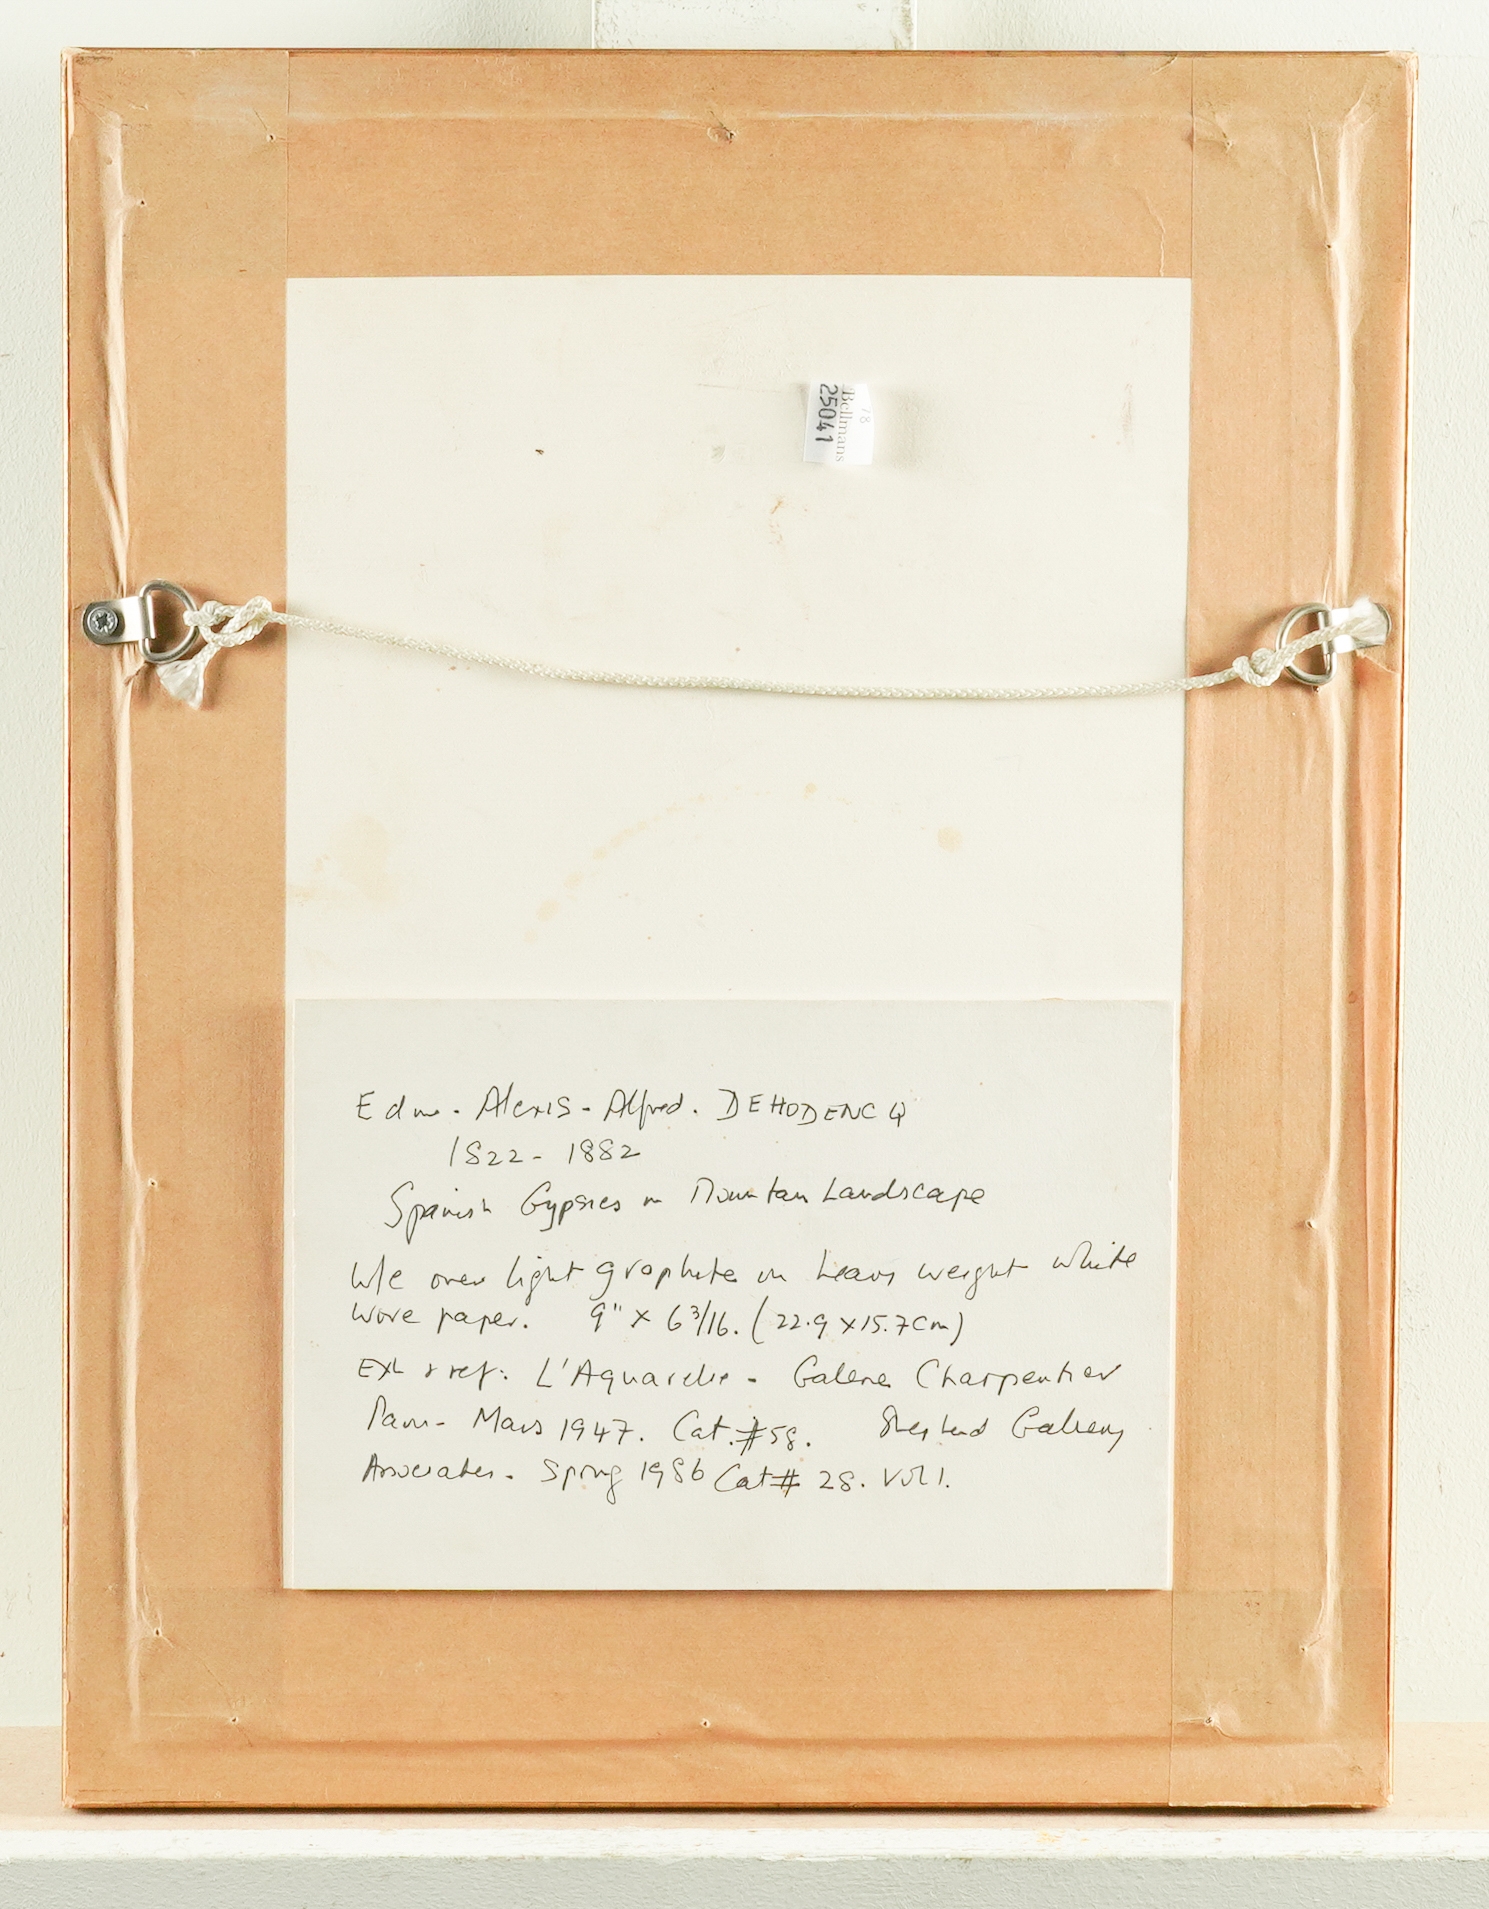 78
Bellmans
25041
Edme - Alexis - Alfred. DEHODENCQ
1822 - 1882
Spanish Gypsies in Mountain Landscape
W/c over light graphite on heavy weight white
wove paper. 9" x 6 3/16. (22.9 x 15.7cm)
Exh & ref: L'Aquarelle - Galerie Charpentier
Paris - Mars 1947. Cat. #58. Shepherd Gallery
Associates - Spring 1986 Cat # 28. Vol 1.